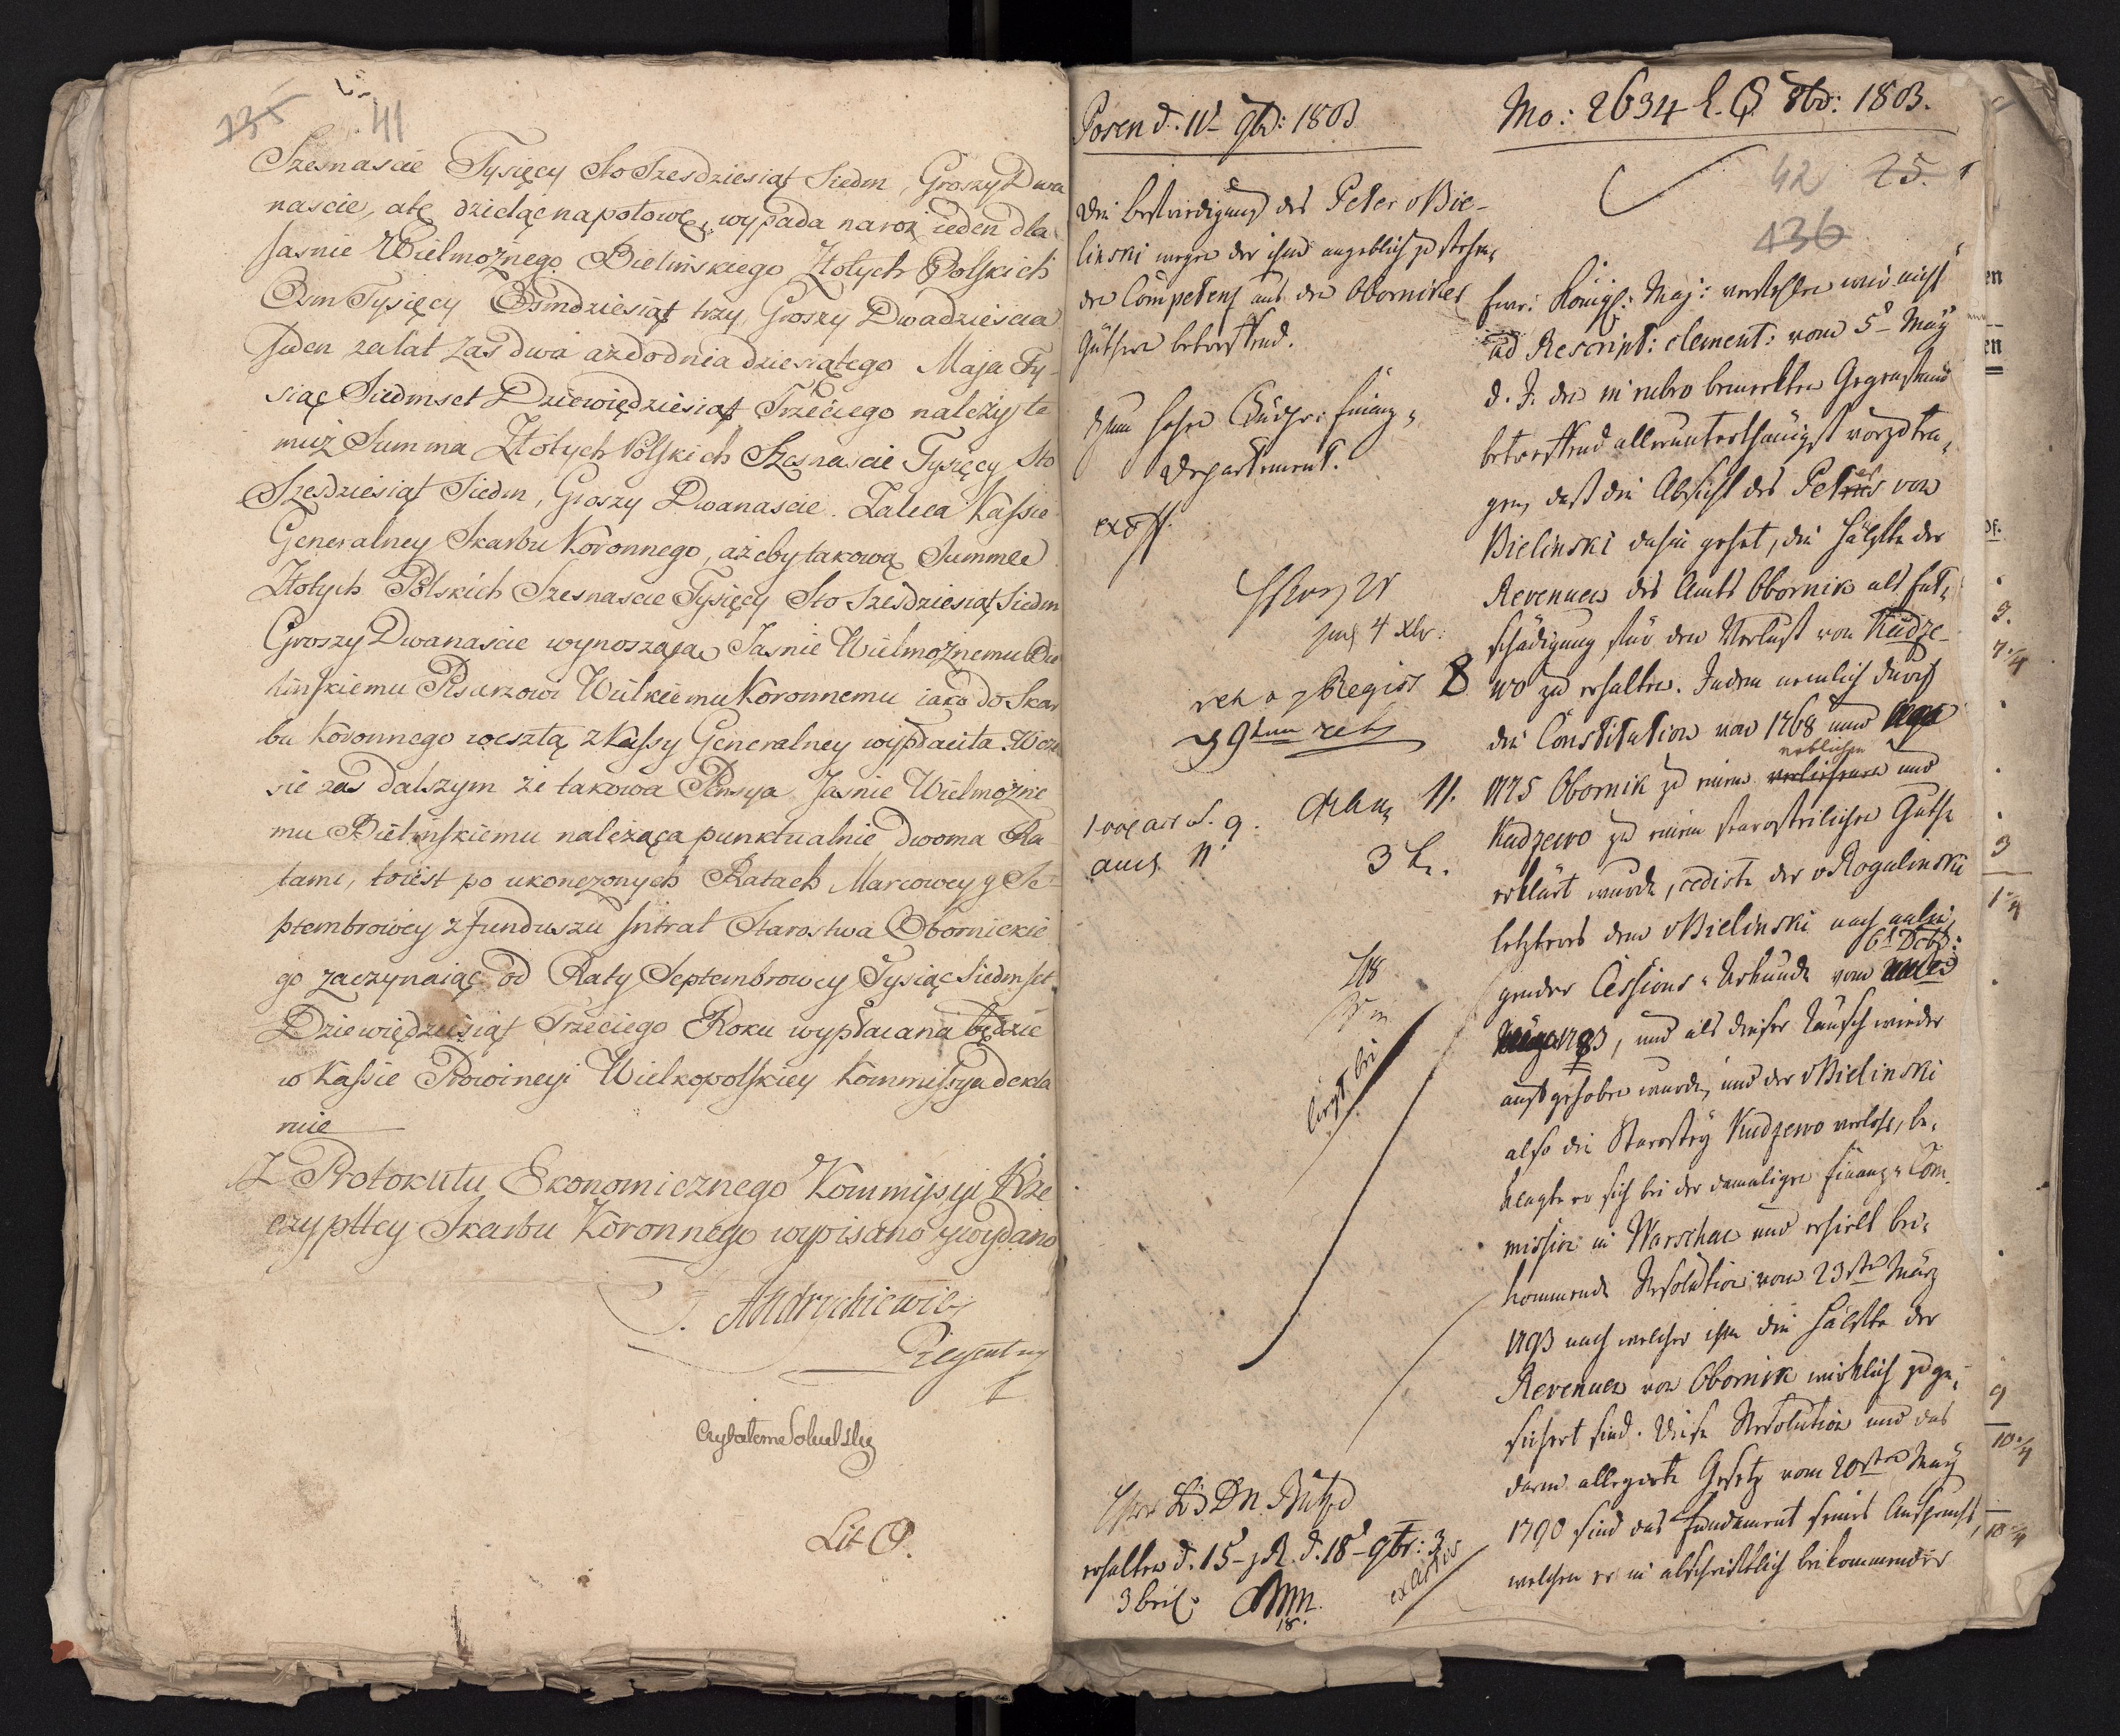 135
41
Szesnascie Tysięcy Sto Szesdziesiąt Siedm, Groszy Dwa
nascie, atę dzieląc napołowę, wypada narok ieden dla
Jasnie Wielmożnego Bielińskiego Złotych Polskich
Osm Tysięcy Ośmdziesiąt trzy, Groszy Dwadziescia
Jeden zalat zas dwa aż do dnia dziesiątego Maja Ty-
siąc Siedmset Dziewiędziesiąt Trzeciego należy te
muż Summa Złotych Polskich Szesnascie Tysięcy Sto
Szesdziesiąt Siedm, Groszy Dwanascie. Zaleca Kassie
Generalney Skarbu Koronnego, ażeby takową Summę
Złotych Polskich Szesnascie Tysięcy Sto Szesdziesiąt Siedm
Groszy Dwanascie wynoszającą Jasnie Wielmożnemu Bie
lińskiemu Pisarzowi Wielkiemu Koronnemu iako do Skar
bu Koronnego weszłą z Kassy Generalney wypłaciła. W cza
sie zas dalszym że takowa Pensya Jasnie Wielmożne
mu Bielinskiemu należąca punktualnie dwoma Ra
tami, toiest po ukonczonych Ratach Marcowey y Se
ptembrowey z funduszu Intrat Starostwa Obornickie
go zaczynaiąc od Raty Septembrowey Tysiąc Siedmset
Dziewiędziesiąt Trzeciego Roku wypłacana będzie
w Kassie Prowincyi Wielkopolskiey Kommissya dekla
ruie
Z Protokułu Ekonomicznego Kommissyi Rze
czypltey Skarbu Koronnego wypisano y wydano
J. Andrychiewicz
Regent mp
Czytałem Sobolewski
Lit O.
Posen d. 11t 9br: 1803
Die Befriedigung des Peter v Bie-
linski wegen der ihm angeblich zustehen-
den Competenz aus den Oborniker
Güthern betreffend.
Zum hohen Südpr: Finanz-
Departement.
ex off.
auch 11
3 br.
liegt bei
erhalten d. 15 d. 18 9br: 3
3 beil.
18.
No: 2634 E. C. 8br: 1803.
42 25.
136
Ewr: Königl: Maj: verfehlen wir nicht
ad Rescript: clement: vom 5t May
d. J. den in rubro bemerkten Gegenstand
betreffend allerunterthänigst vorzutra-
gen, daß die Absicht des Peter von
Bielinski dahin gehet, die Hälfte der
Revenuen des Amts Obornik als Ent-
schädigung für den Verlust von Kudze-
wo zu erhalten. Indem nemlich durch
die Constitution von 1768 und
1775 Obornik zu einem erblichen und
Kudzewo zu einem starosteilichen Guthe
erklärt wurde, cedirte der v Rogalinski
letzteres dem v Bielinski nach anlie-
gender Cessions-Urkunde vom 6t Debr:
1783, und als dieser Tausch wieder
aufgehoben wurde, und der v Bielinski
also die Starostey Kudzewo verlohr, be-
klagte er sich bei der damaligen Finanz-Com-
mission in Warschau und erhielt bei-
kommende Resolution vom 23sten März
1793 nach welcher ihm die Hälfte der
Revenuen von Obornik wirklich zuge-
sichert sind. Diese Resolution und das
darin allegirte Gesetz vom 20sten May
1790 sind das Fundament seines Anspruchs,
welchen er in abschriftlich beikommender